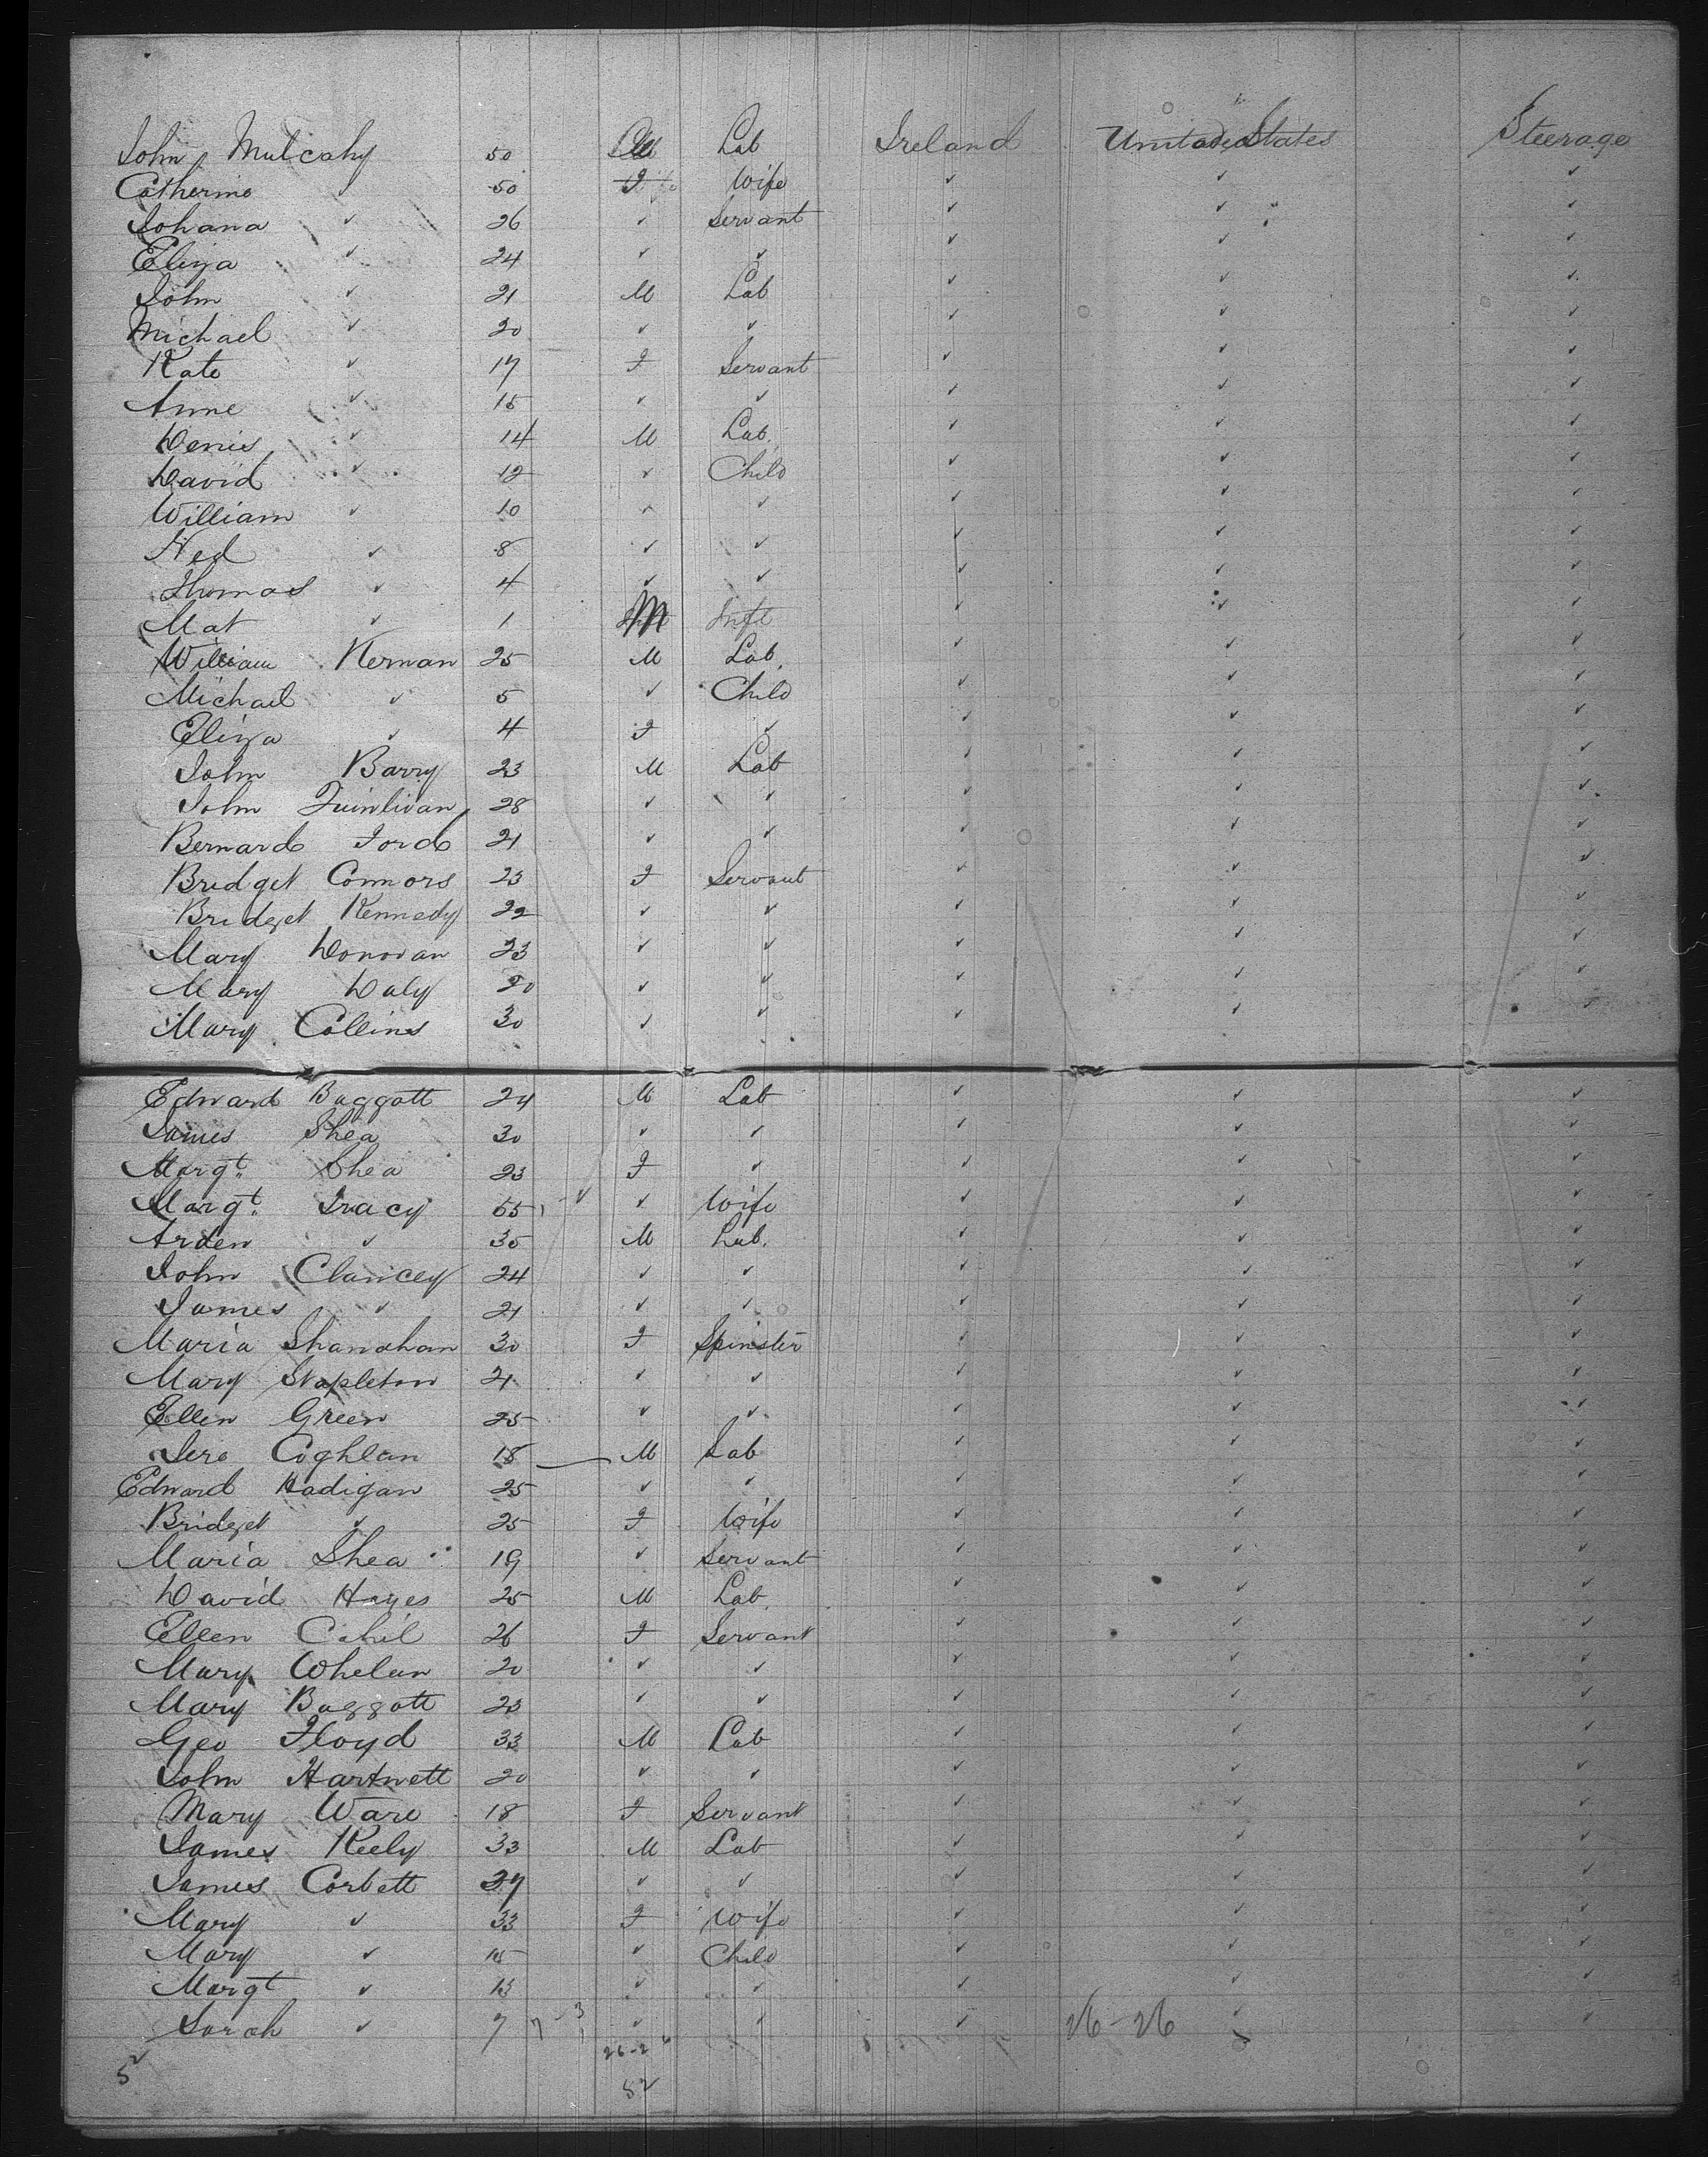 John Mulcahy 50 M Lab Ireland United States Steerage
Catherine 50 F Wife ✓ ✓ ✓
Johana ✓ 26 ✓ Servant ✓ ✓ ✓
Eliza ✓ 24 ✓ ✓ ✓ ✓ ✓
John ✓ 21 M Lab ✓ ✓ ✓
Michael ✓ 20 ✓ ✓ ✓ ✓ ✓
Kate ✓ 17 F Servant ✓ ✓ ✓
Anne ✓ 15 ✓ ✓ ✓ ✓ ✓
Denis ✓ 14 M Lab. ✓ ✓ ✓
David ✓ 12 ✓ Child ✓ ✓ ✓
William ✓ 10 ✓ ✓ ✓ ✓ ✓
Ned ✓ 8 ✓ ✓ ✓ ✓ ✓
Thomas ✓ 4 ✓ ✓ ✓ ✓ ✓
Mat ✓ 1 M Inft ✓ ✓ ✓
William Kernan 25 M Lab. ✓ ✓ ✓
Michael ✓ 5 ✓ Child ✓ ✓ ✓
Eliza ✓ 4 F ✓ ✓ ✓ ✓
John Barry 23 M Lab ✓ ✓ ✓
John Quinlivan 28 ✓ ✓ ✓ ✓ ✓
Bernard Ford 21 ✓ ✓ ✓ ✓ ✓
Bridget Connors 23 F Servant ✓ ✓ ✓
Bridget Kennedy 22 ✓ ✓ ✓ ✓ ✓
Mary Donovan 23 ✓ ✓ ✓ ✓ ✓
Mary Daly 20 ✓ ✓ ✓ ✓ ✓
Mary Collins 30 ✓ ✓ ✓ ✓ ✓
Edward Baggott 24 M Lab ✓ ✓ ✓
James Shea 30 ✓ ✓ ✓ ✓ ✓
Margt. Shea 23 F ✓ ✓ ✓ ✓
Margt. Tracy 55 ✓ ✓ Wife ✓ ✓ ✓
Arden ✓ 35 M Lab. ✓ ✓ ✓
John Clancey 24 ✓ ✓ ✓ ✓ ✓
James ✓ 21 ✓ ✓ ✓ ✓ ✓
Maria Shanahan 30 F Spinster ✓ ✓ ✓
Mary Stapleton 21 ✓ ✓ ✓ ✓ ✓
Ellen Green 25 ✓ ✓ ✓ ✓ ✓
Jere Coghlan 18 M Lab ✓ ✓ ✓
Edward Hadigan 25 ✓ ✓ ✓ ✓ ✓
Bridget ✓ 25 F Wife ✓ ✓ ✓
Maria Shea 19 ✓ Servant ✓ ✓ ✓
David Hayes 25 M Lab. ✓ ✓ ✓
Ellen Cahil 26 F Servant ✓ ✓ ✓
Mary Whelan 20 ✓ ✓ ✓ ✓ ✓
Mary Baggott 23 ✓ ✓ ✓ ✓ ✓
Geo Floyd 33 M Lab ✓ ✓ ✓
John Hartnett 20 ✓ ✓ ✓ ✓ ✓
Mary Ware 18 F Servant ✓ ✓ ✓
James Keely 33 M Lab ✓ ✓ ✓
James Corbett 37 ✓ ✓ ✓ ✓ ✓
Mary ✓ 33 F Wife ✓ ✓ ✓
Mary ✓ 15 ✓ Child ✓ ✓ ✓
Margt ✓ 13 ✓ ✓ ✓ ✓ ✓
Sarah ✓ 7 7-3 ✓ ✓ ✓ 26-26 ✓ ✓
26-26
52 52